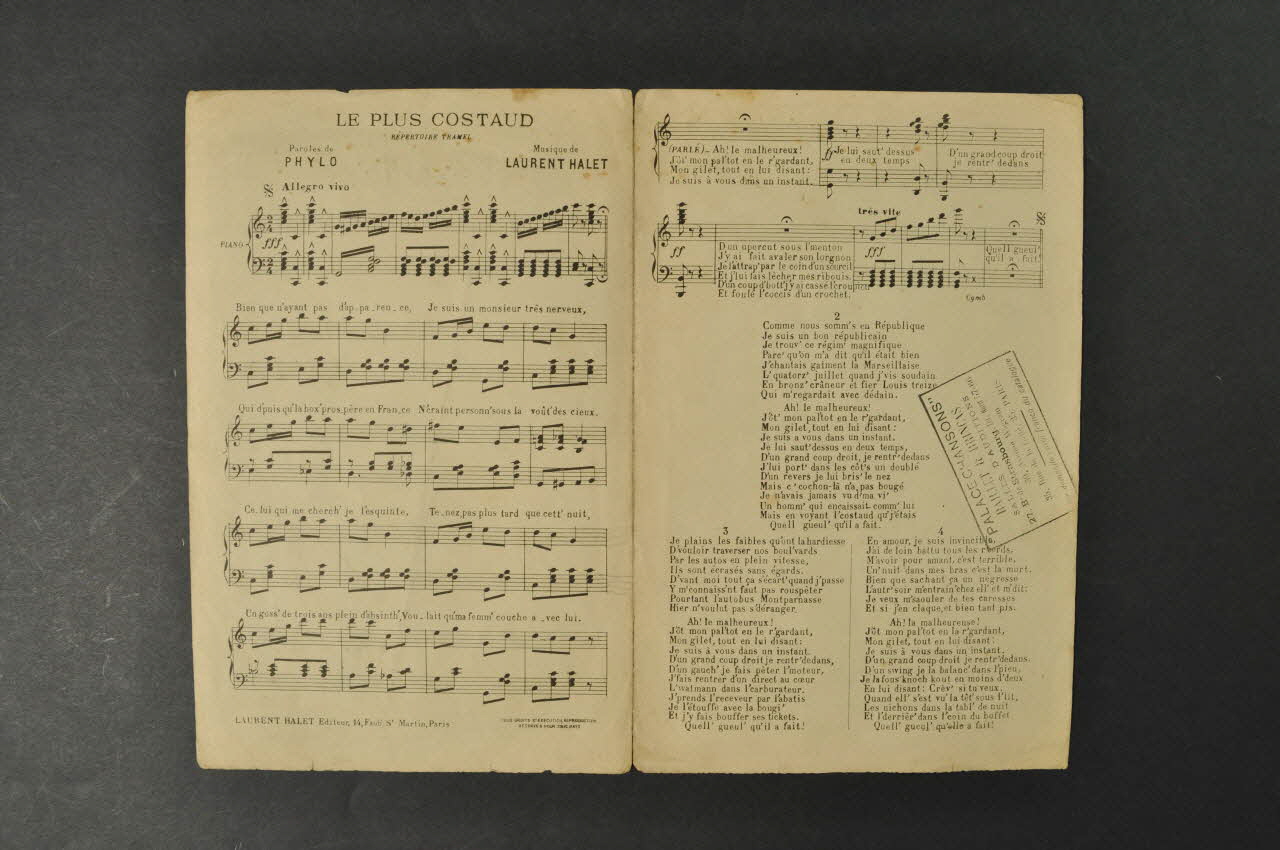 LE PLUS COSTAUD
RÉPERTOIRE TRAMEL
Paroles de
PHYLO
Musique de
LAURENT HALET
Allegro vivo
PIANO
fff
Bien que n'ayant pas d'ap_pa_ren_ce, Je suis un monsieur très nerveux,
Qui d'puis qu'la box' pros_père en Fran_ce N'craint personn' sous la voût' des cieux.
Ce_lui qui me cherch' je l'esquinte, Te_nez, pas plus tard que cett' nuit,
Un goss' de trois ans plein d'absinth', Vou_lait qu'ma femm' couche a_vec lui.
LAURENT HALET Editeur, 14, Faubg St Martin, Paris
TOUS DROITS D'EXÉCUTION, REPRODUCTION
RÉSERVÉS POUR TOUS PAYS
(PARLÉ)_ Ah! le malheureux!
J'ôt' mon pal'tot en le r'gardant,
Mon gilet, tout en lui disant:
Je suis à vous dans un instant.
ff Je lui saut' dessus
en deux temps
D'un grand coup droit
je rentr' dedans
très vite
ff
D'un upercut sous l'menton
J'y ai fait avaler son lorgnon
Je l'attrap' par le coin d'un sourcil
Et j'lui fais lécher mes ribouis.
D'un coup d'bott' j'y ai cassé l'croupion
Et foulé l'coccis d'un crochet.
Quell gueul'
qu'il a fait!
Cymb
2
Comme nous somm's en République
Je suis un bon républicain
Je trouv' ce régim' magnifique
Parc' qu'on m'a dit qu'il était bien
J'chantais gaiment la Marseillaise
L'quatorz' juillet quand j'vis soudain
En bronz' crâneur et fier Louis treize
Qui m'regardait avec dédain.
Ah! le malheureux!
J'ôt' mon pal'tot en le r'gardant,
Mon gilet, tout en lui disant:
Je suis a vous dans un instant.
Je lui saut' dessus en deux temps,
D'un grand coup droit, je rentr' dedans
J'lui port' dans les côt's un doublé
D'un revers je lui bris' le nez
Mais c'cochon-là n'a pas bougé
Je n'avais jamais vu d'ma vi'
Un homm' qui encaissait comm' lui
Mais en voyant l'costaud qu'j'étais
Quell gueul' qu'il a fait.
3
Je plains les faibles qu'ont la hardiesse
D'vouloir traverser nos boul'vards
Par les autos en plein vitesse,
Ils sont écrasés sans égards.
D'vant moi tout ça s'écart' quand j'passe
Y m'connaiss'nt faut pas rouspéter
Pourtant l'autobus Montparnasse
Hier n'voulut pas s'déranger.
Ah! le malheureux!
J'ôt mon pal'tot en le r'gardant,
Mon gilet, tout en lui disant:
Je suis à vous dans un instant.
D'un grand coup droit je rentr' dedans,
D'un gauch' je fais pèter l'moteur,
J'fais rentrer d'un direct au cœur
L'watmann dans l'carburateur.
J'prends l'receveur par l'abatis
Je l'étouffe avec la bougi'
Et j'y fais bouffer ses tickets.
Quell' gueul' qu'il a fait!
4
En amour, je suis invincible,
J'ai de loin battu tous les records.
M'avoir pour amant, c'est terrible,
Un' nuit dans mes bras c'est la mort.
Bien que sachant ça un négresse
L'autr' soir m'entrain' chez ell' et m'dit:
Je veux m'saouler de tes caresses
Et si j'en claque, et bien tant pis.
Ah! la malheureuse!
J'ôt mon pal'tot en la r'gardant,
Mon gilet, tout en lui disant:
Je suis à vous dans un instant.
D'un grand coup droit je rentr' dedans.
D'un swing je la balanc' dans l'pieu,
Je la fous knock kout en moins d'deux
En lui disant: Crèv' si tu veux.
Quand ell' s'est vu' la têt' sous l'lit,
Les nichons dans la tabl' de nuit
Et l'derrièr' dans l'coin du buffet
Quell' gueul' qu'elle a fait!
"PALACE CHANSONS"
SALLES D'AUDITIONS
27, B de Strasbourg,
PARIS